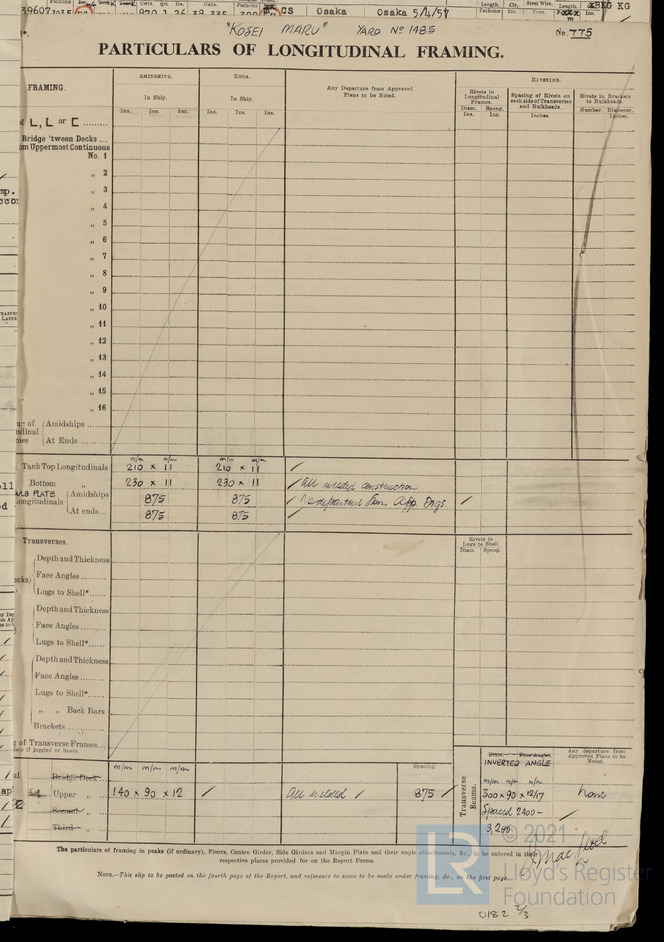 CS Osaka Osaka 5/4/57
"KOSEI MARU" YARD No 1485
No. 775
PARTICULARS OF LONGITUDINAL FRAMING.
FRAMING.
AMIDSHIPS. ENDS. Any Departure from Approved Plans to be Noted. RIVETING.
In Ship. In Ship.
Rivets in Longitudinal Frames. Spacing of Rivets on each side of Transverses and Bulkheads. Rivets in Brackets to Bulkheads.
Ins. Ins. Ins. Ins. Ins. Ins. Diam. Ins. Speng. Ins. Inches. Number. Diameter. Inches.
L, L or C
Bridge 'tween Decks ...
Uppermost Continuous
No. 1
„ 2
„ 3
„ 4
„ 5
„ 6
„ 7
„ 8
„ 9
„ 10
„ 11
„ 12
„ 13
„ 14
„ 15
„ 16
Amidships
At Ends
m/m m/m m/m m/m
Tank Top Longitudinals 210 × 11 210 × 11 ✓
Bottom „ 230 × 11 230 × 11 ✓ All welded construction
PLATE Amidships 875 875 ✓ No departure from App. Dngs. ✓
At ends... 875 875 ✓
Transverses.
Rivets in Lugs to Shell.
Diam. Speng.
Depth and Thickness
Face Angles
Lugs to Shell*
Depth and Thickness
Face Angles
Lugs to Shell*
Depth and Thickness
Face Angles
Lugs to Shell*
„ „ Back Bars
Brackets
of Transverse Frames
Any departure from Approved Plans to be Noted.
INVERTED ANGLE
m/m m/m m/m Spacing.
Bridge Deck
Upper „ 140 × 90 × 12 ✓ All welded ✓ 875 ✓
Second „
Third „
Transverse Beams.
m/m m/m m/m
300 × 90 × 12/17 none
Spaced 2400 - ✓
The particulars of framing in peaks (if ordinary), Floors, Centre Girder, Side Girders and Margin Plate and their angle attachments, &c., to be entered in their
respective places provided for on the Report Forms.
NOTE.—This slip to be posted on the fourth page of the Report, and reference to same to be made under framing, &c., on the first page.
LR © 2021
Lloyd's Register
Foundation
0182 2/3